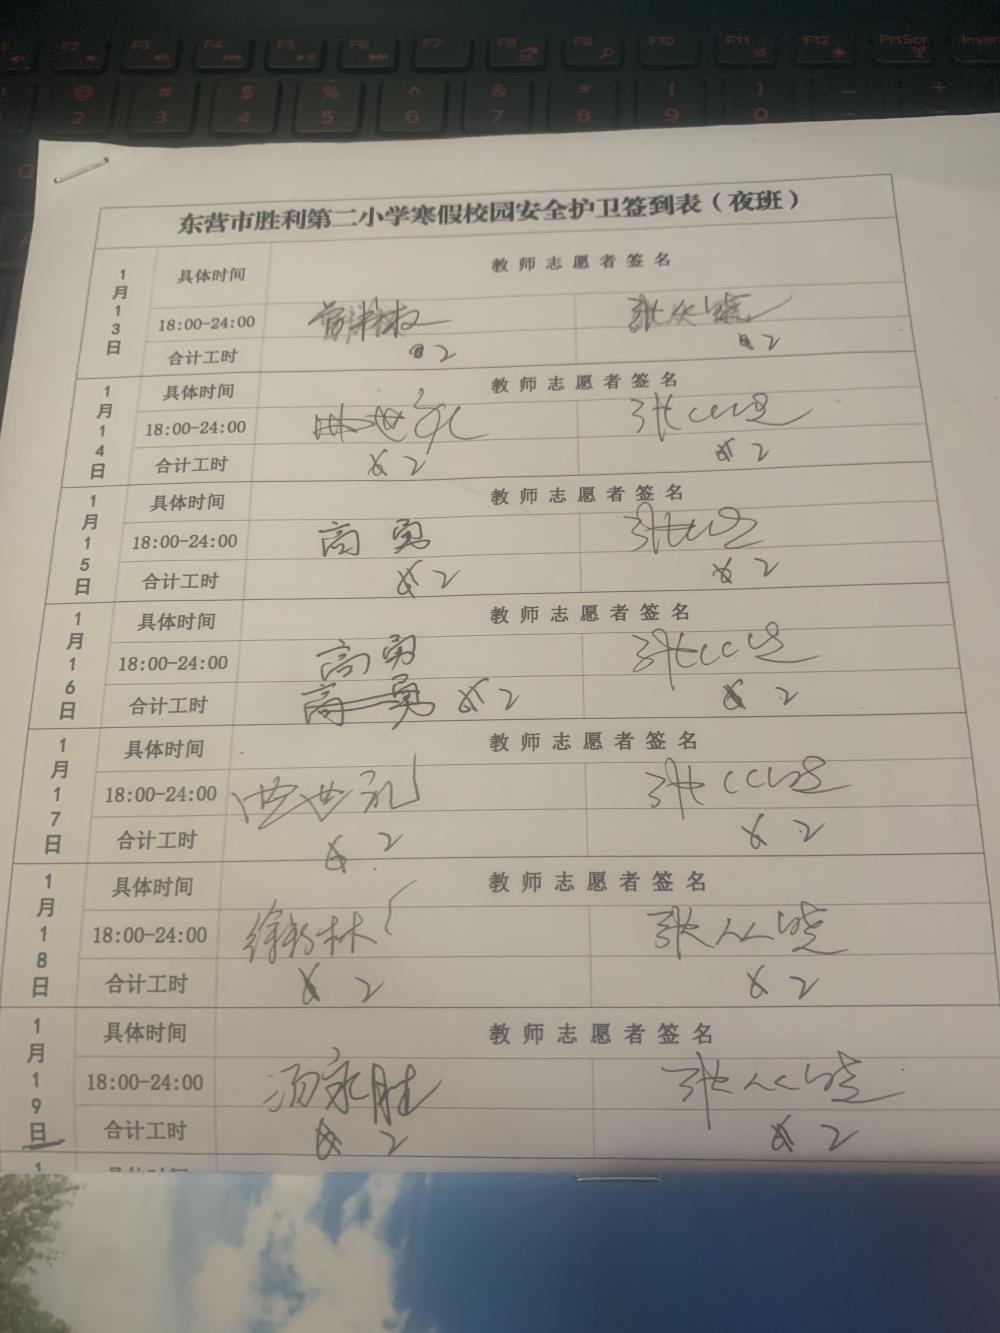 F2 F3 F4 F5 F6 F7 F8 F9 F10 F11 F12 PrtScr Inser
@ # $ % ^ & * ( ) — +
2 3 4 5 6 7 8 9 0 -
东营市胜利第二小学寒假校园安全护卫签到表（夜班）
1月13日 具体时间 教师志愿者签名
18:00-24:00
合计工时 2 2
1月14日 具体时间 教师志愿者签名
18:00-24:00 张
合计工时 2 2
1月15日 具体时间 教师志愿者签名
18:00-24:00 高勇 张
合计工时 2 2
1月16日 具体时间 教师志愿者签名
18:00-24:00 高勇 张
合计工时 高勇 2 2
1月17日 具体时间 教师志愿者签名
18:00-24:00 张
合计工时 2 2
1月18日 具体时间 教师志愿者签名
18:00-24:00 张众晓
合计工时 2 2
1月19日 具体时间 教师志愿者签名
18:00-24:00 汤永胜 张众晓
合计工时 2 2
1 具体时间